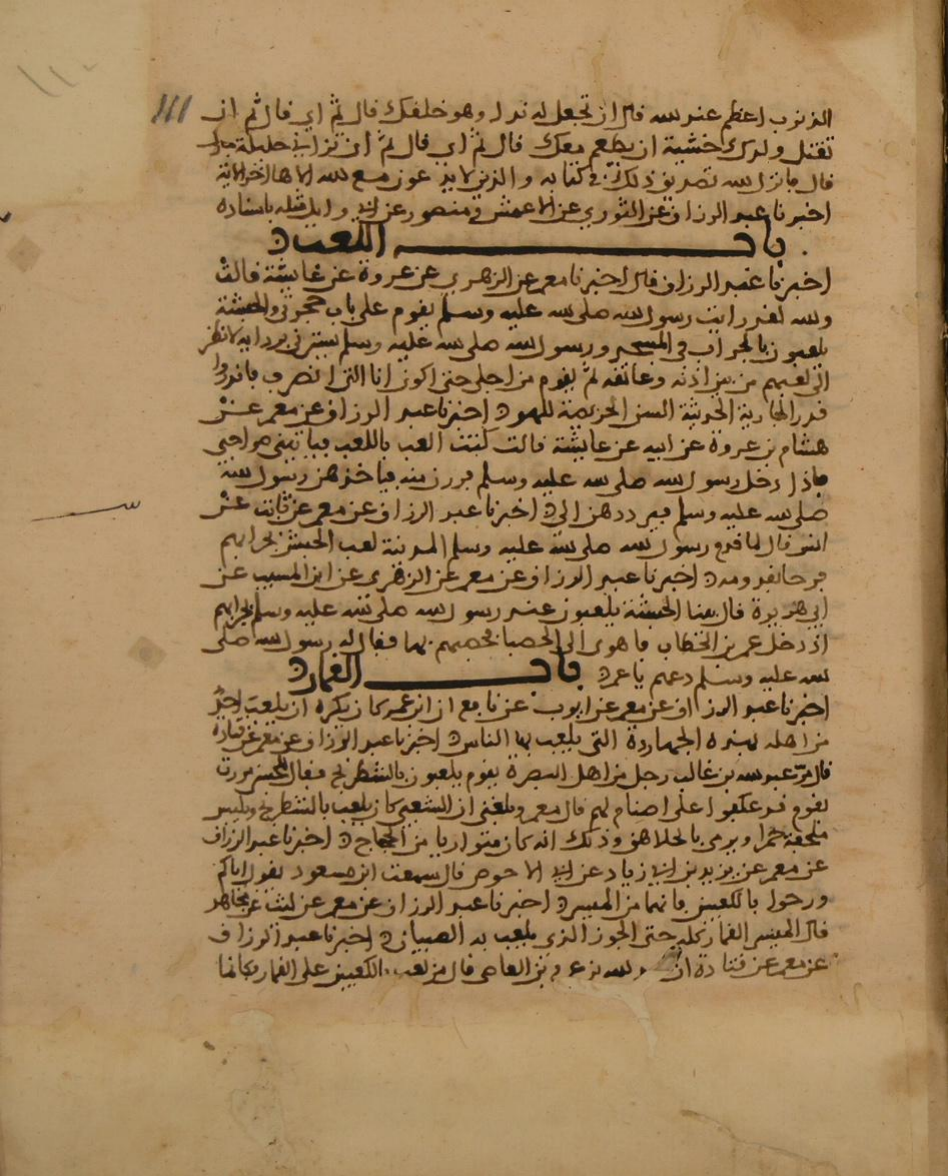 ١١١
الذنوب اعظم عند الله قال ان تجعل له ندا وهو خلقك قال ثم اي قال ثم ان
تقتل ولدك خشية ان يطعم معك قال ثم اي قال ثم ان تزاني حليلة جارك
قال فانزل الله تصديق ذلك في كتابه والذين لا يدعون مع الله الاها اخر الاية
اخبرنا عبد الرزاق عن الثوري عن الاعمش ومنصور عن ابي وايل مثله باسناده
باب اللعب
اخبرنا عبد الرزاق قال اخبرنا معمر عن الزهري عن عروة عن عائشة قالت
والله لقد رايت رسول الله صلى الله عليه وسلم يقوم على باب حجرتي والحبشة
يلعبون بالحراب في المسجد ورسول الله صلى الله عليه وسلم يسترني بردايه لانظر
الى لعبهم من بين اذنه وعاتقه ثم يقوم من اجلي حتى اكون انا التي انصرف فاقدروا
قدر الجارية الحديثة السن الحريصة للهو اخبرنا عبد الرزاق عن معمر عن
هشام بن عروة عن ابيه عن عايشة قالت كنت العب باللعب فياتيني صواحبي
فاذا دخل رسول الله صلى الله عليه وسلم فررن منه فياخذهن رسول الله
صلى الله عليه وسلم فيرددهن الي اخبرنا عبد الرزاق عن معمر عن ثابت عن
انس قال لما قدم رسول الله صلى الله عليه وسلم المدينة لعب الحبش بحرابهم
فرحا بقدومه اخبرنا عبد الرزاق عن معمر عن الزهري عن ابن المسيب عن
ابي هريرة قال بينا الحبشة يلعبون عند رسول الله صلى الله عليه وسلم بحرابهم
اذ دخل عمر بن الخطاب فاهوى الى الحصبا فحصبهم بها فقال له رسول الله صلى
الله عليه وسلم دعهم يا عمر باب القمار
اخبرنا عبد الرزاق عن معمر عن ايوب عن نافع ان ابن عمر كان يكره ان يلعب احد
من اهله بهذه الجهاردة التي يلعب بها الناس اخبرنا عبد الرزاق عن معمر عن قتادة
قال مر عبد الله بن غالب رجل من اهل البصرة بقوم يلعبون بالشطرنج فقال للحسن مررت
بقوم قد عكفوا على اصنام لهم قال معمر وبلغني ان الشعبي كان يلعب بالشطرنج ويلبس
ملحفة حمرا ويرمي بالجلاهق وذلك انه كان متواريا من الحجاج اخبرنا عبد الرزاق
عن معمر عن يزيد بن ابي زياد عن ابي الاحوص قال سمعت ابن مسعود يقول اياكم
ودحوا بالكعبين فانهما من الميسر اخبرنا عبد الرزاق عن معمر عن ليث عن مجاهد
قال الميسر القمار كله حتى الجوز الذي يلعب به الصبيان اخبرنا عبد الرزاق
عن معمر عن قتادة ان الله بن عمرو بن العاص قال من لعب بالكعبين على القمار فكانما